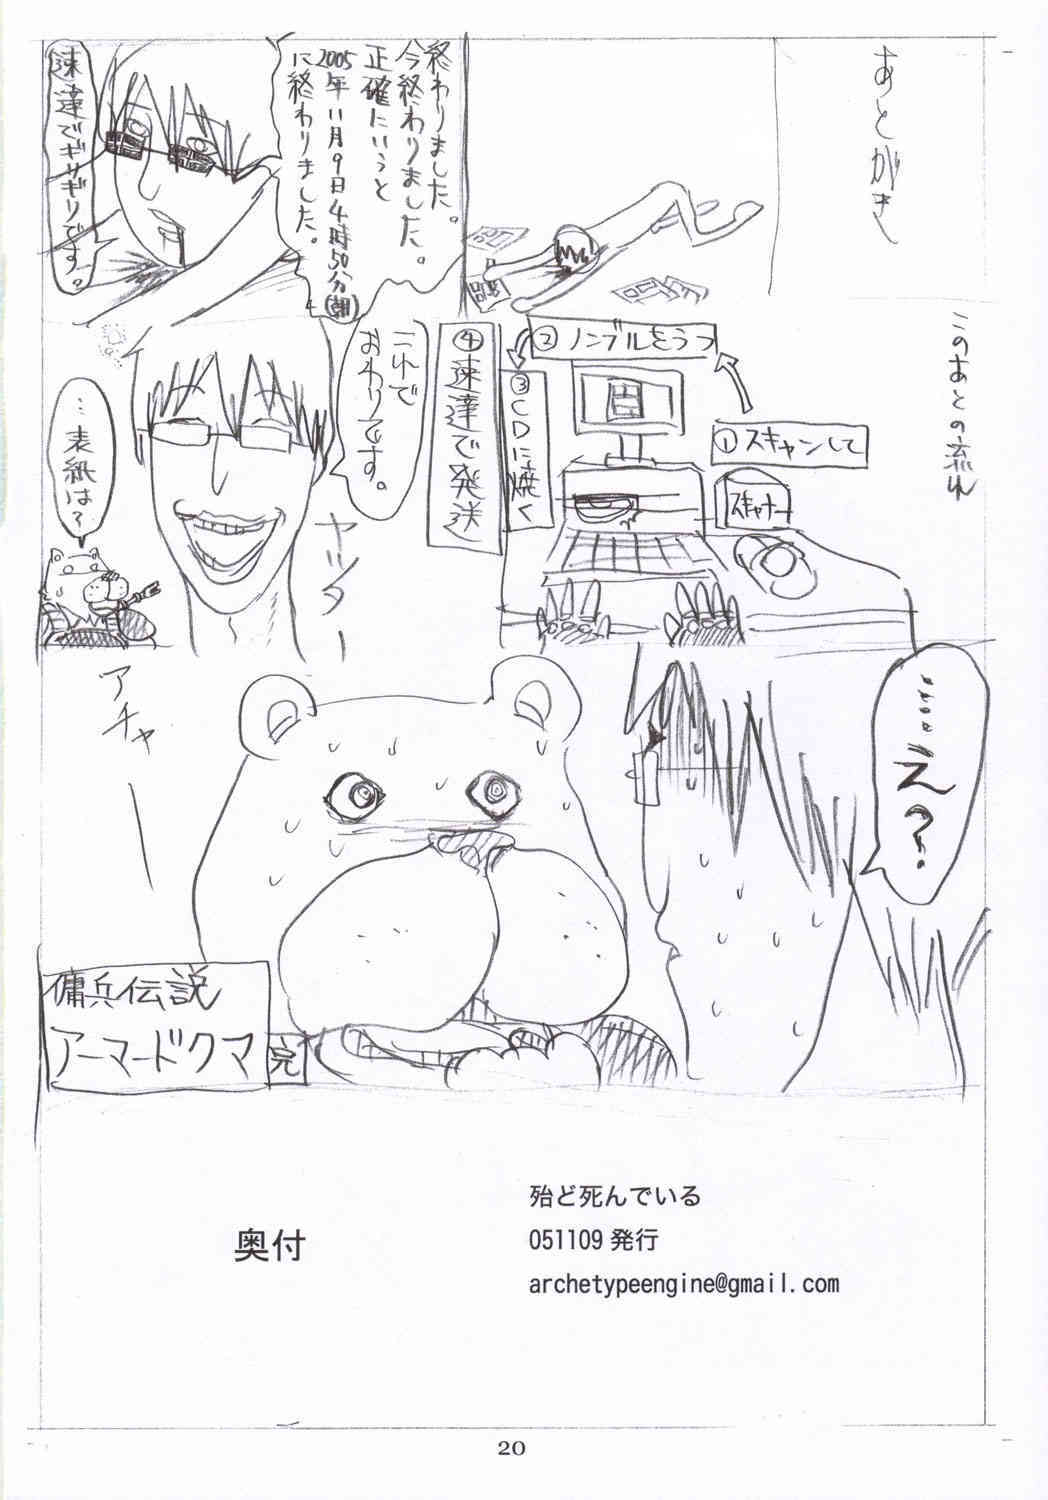 あとがき
終わりました。
今終わりました。
正確にいうと
2005年11月9日4時50分(朝)
に終わりました。
速達でギリギリです。
このあとの流れ
①スキャンして
スキャナー
②ノンブルをうつ
③CDに焼く
④速達で発送
これで
おわりです。
ヤッター
…表紙は？
……え？
アチャー
傭兵伝説
アーマードクマ
完
奥付
殆ど死んでいる
051109 発行
archetypeengine@gmail.com
20